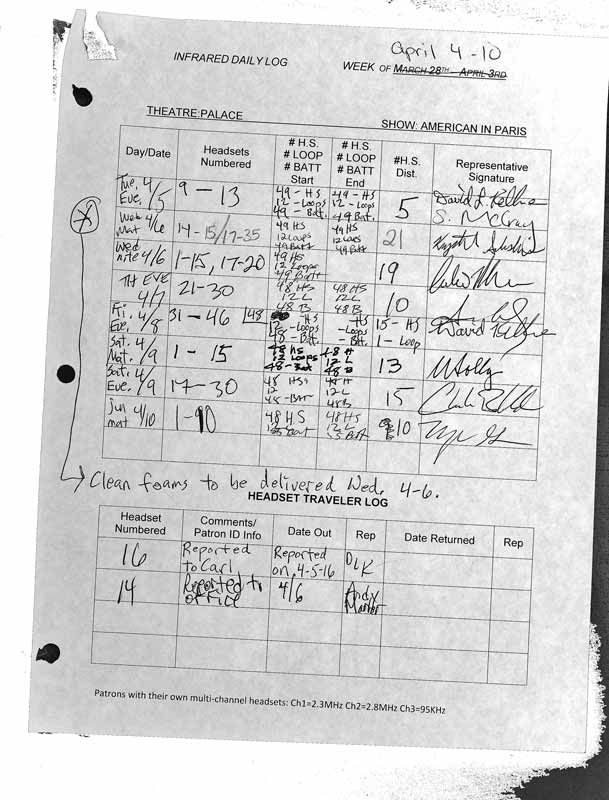 April 4-10
INFRARED DAILY LOG
WEEK OF MARCH 28TH - APRIL 3RD
THEATRE:PALACE
SHOW: AMERICAN IN PARIS
Day/Date Headsets Numbered # H.S. # LOOP # BATT Start # H.S. # LOOP # BATT End #H.S. Dist. Representative Signature
Tue. 4/5 Eve. 9 - 13 49 - HS 12 - Loops 49 - Batt. 49 - HS 12 - Loops 49 Batt. 5 David L. S. McCray
Wed Mat 4/6 14-15/17-35 49 HS 12 Loops 49 Batt 49 HS 12 Loops 49 Batt 21
Wed nite 4/6 1-15, 17-20 49 HS 12 Loops 49 Batt 19
TH EVE 4/7 21-30 48 HS 12 L 48 B 48 HS 12 L 48 B 10
Fri. Eve. 4/8 31 - 46 48 - HS 12 - Loops 48 - Batt. HS - Loops - Batt. 15 - HS 1 - Loop David
Sat. Mat. 4/9 1 - 15 48 HS 12 Loops 48 - Bat 48 H 12 L 48 B 13
Sat. Eve. 4/9 17-30 48 HS 12 48 - BATT 48 H 12 L 48 B 15
Sun mat 4/10 1-10 48 H.S 12 Batt 48 HS 12 L Batt 10
Clean foams to be delivered Wed. 4-6.
HEADSET TRAVELER LOG
Headset Numbered Comments/ Patron ID Info Date Out Rep Date Returned Rep
16 Reported to Carl Reported on 4-5-16 DLK
14 Reported to office 4/6 Andy
Patrons with their own multi-channel headsets: Ch1=2.3MHz Ch2=2.8MHz Ch3=95KHz